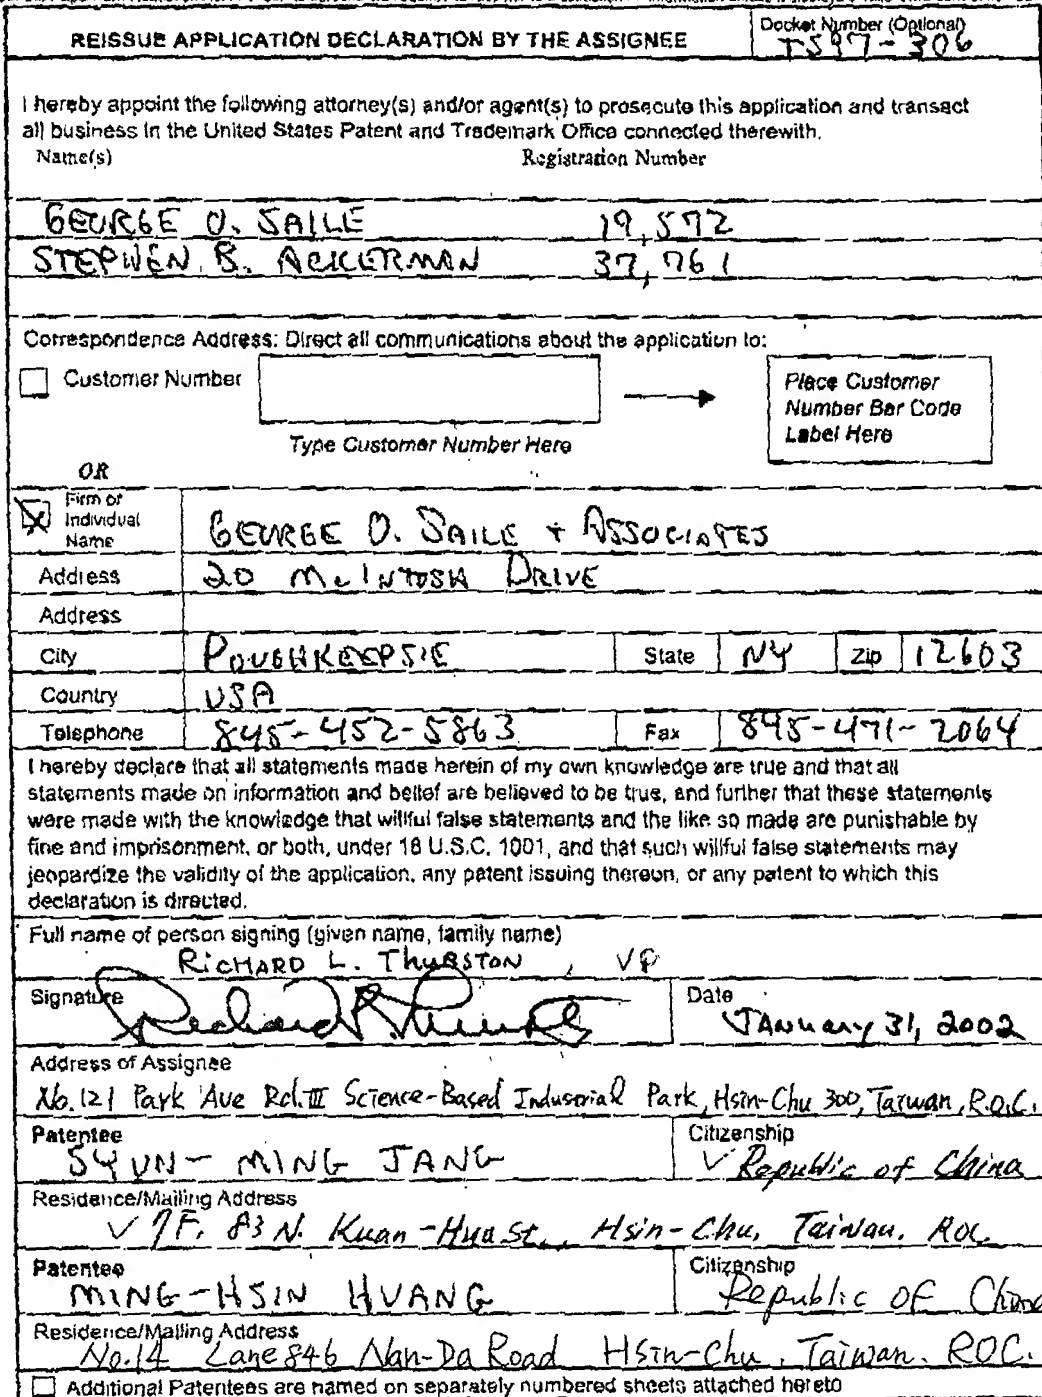 REISSUE APPLICATION DECLARATION BY THE ASSIGNEE
Docket Number (Optional)
TS97-306
I hereby appoint the following attorney(s) and/or agent(s) to prosecute this application and transact
all business in the United States Patent and Trademark Office connected therewith.
Name(s) Registration Number
GEORGE O. SAILE 19,572
STEPHEN B. ACKERMAN 37,761
Correspondence Address: Direct all communications about the application to:
Customer Number
Type Customer Number Here
Place Customer
Number Bar Code
Label Here
OR
Firm or
Individual
Name
GEORGE O. SAILE + ASSOCIATES
Address 20 McINTOSH DRIVE
Address
City POUGHKEEPSIE State NY Zip 12603
Country USA
Telephone 845-452-5863 Fax 845-471-2064
I hereby declare that all statements made herein of my own knowledge are true and that all
statements made on information and belief are believed to be true, and further that these statements
were made with the knowledge that willful false statements and the like so made are punishable by
fine and imprisonment, or both, under 18 U.S.C. 1001, and that such willful false statements may
jeopardize the validity of the application, any patent issuing thereon, or any patent to which this
declaration is directed.
Full name of person signing (given name, family name)
RICHARD L. THURSTON, VP
Signature
Date
JANUARY 31, 2002
Address of Assignee
No. 121 Park Ave Rd. III Science-Based Indusorial Park, Hsin-Chu 300, Taiwan, R.O.C.
Patentee
SYUN-MING JANG
Citizenship
Republic of China
Residence/Mailing Address
7F, 83 N. Kuan-Hua St., Hsin-Chu, Taiwan, ROC
Patentee
MING-HSIN HUANG
Citizenship
Republic OF China
Residence/Mailing Address
No.14 Lane 846 Nan-Da Road Hsin-Chu, Taiwan. ROC.
Additional Patentees are named on separately numbered sheets attached hereto